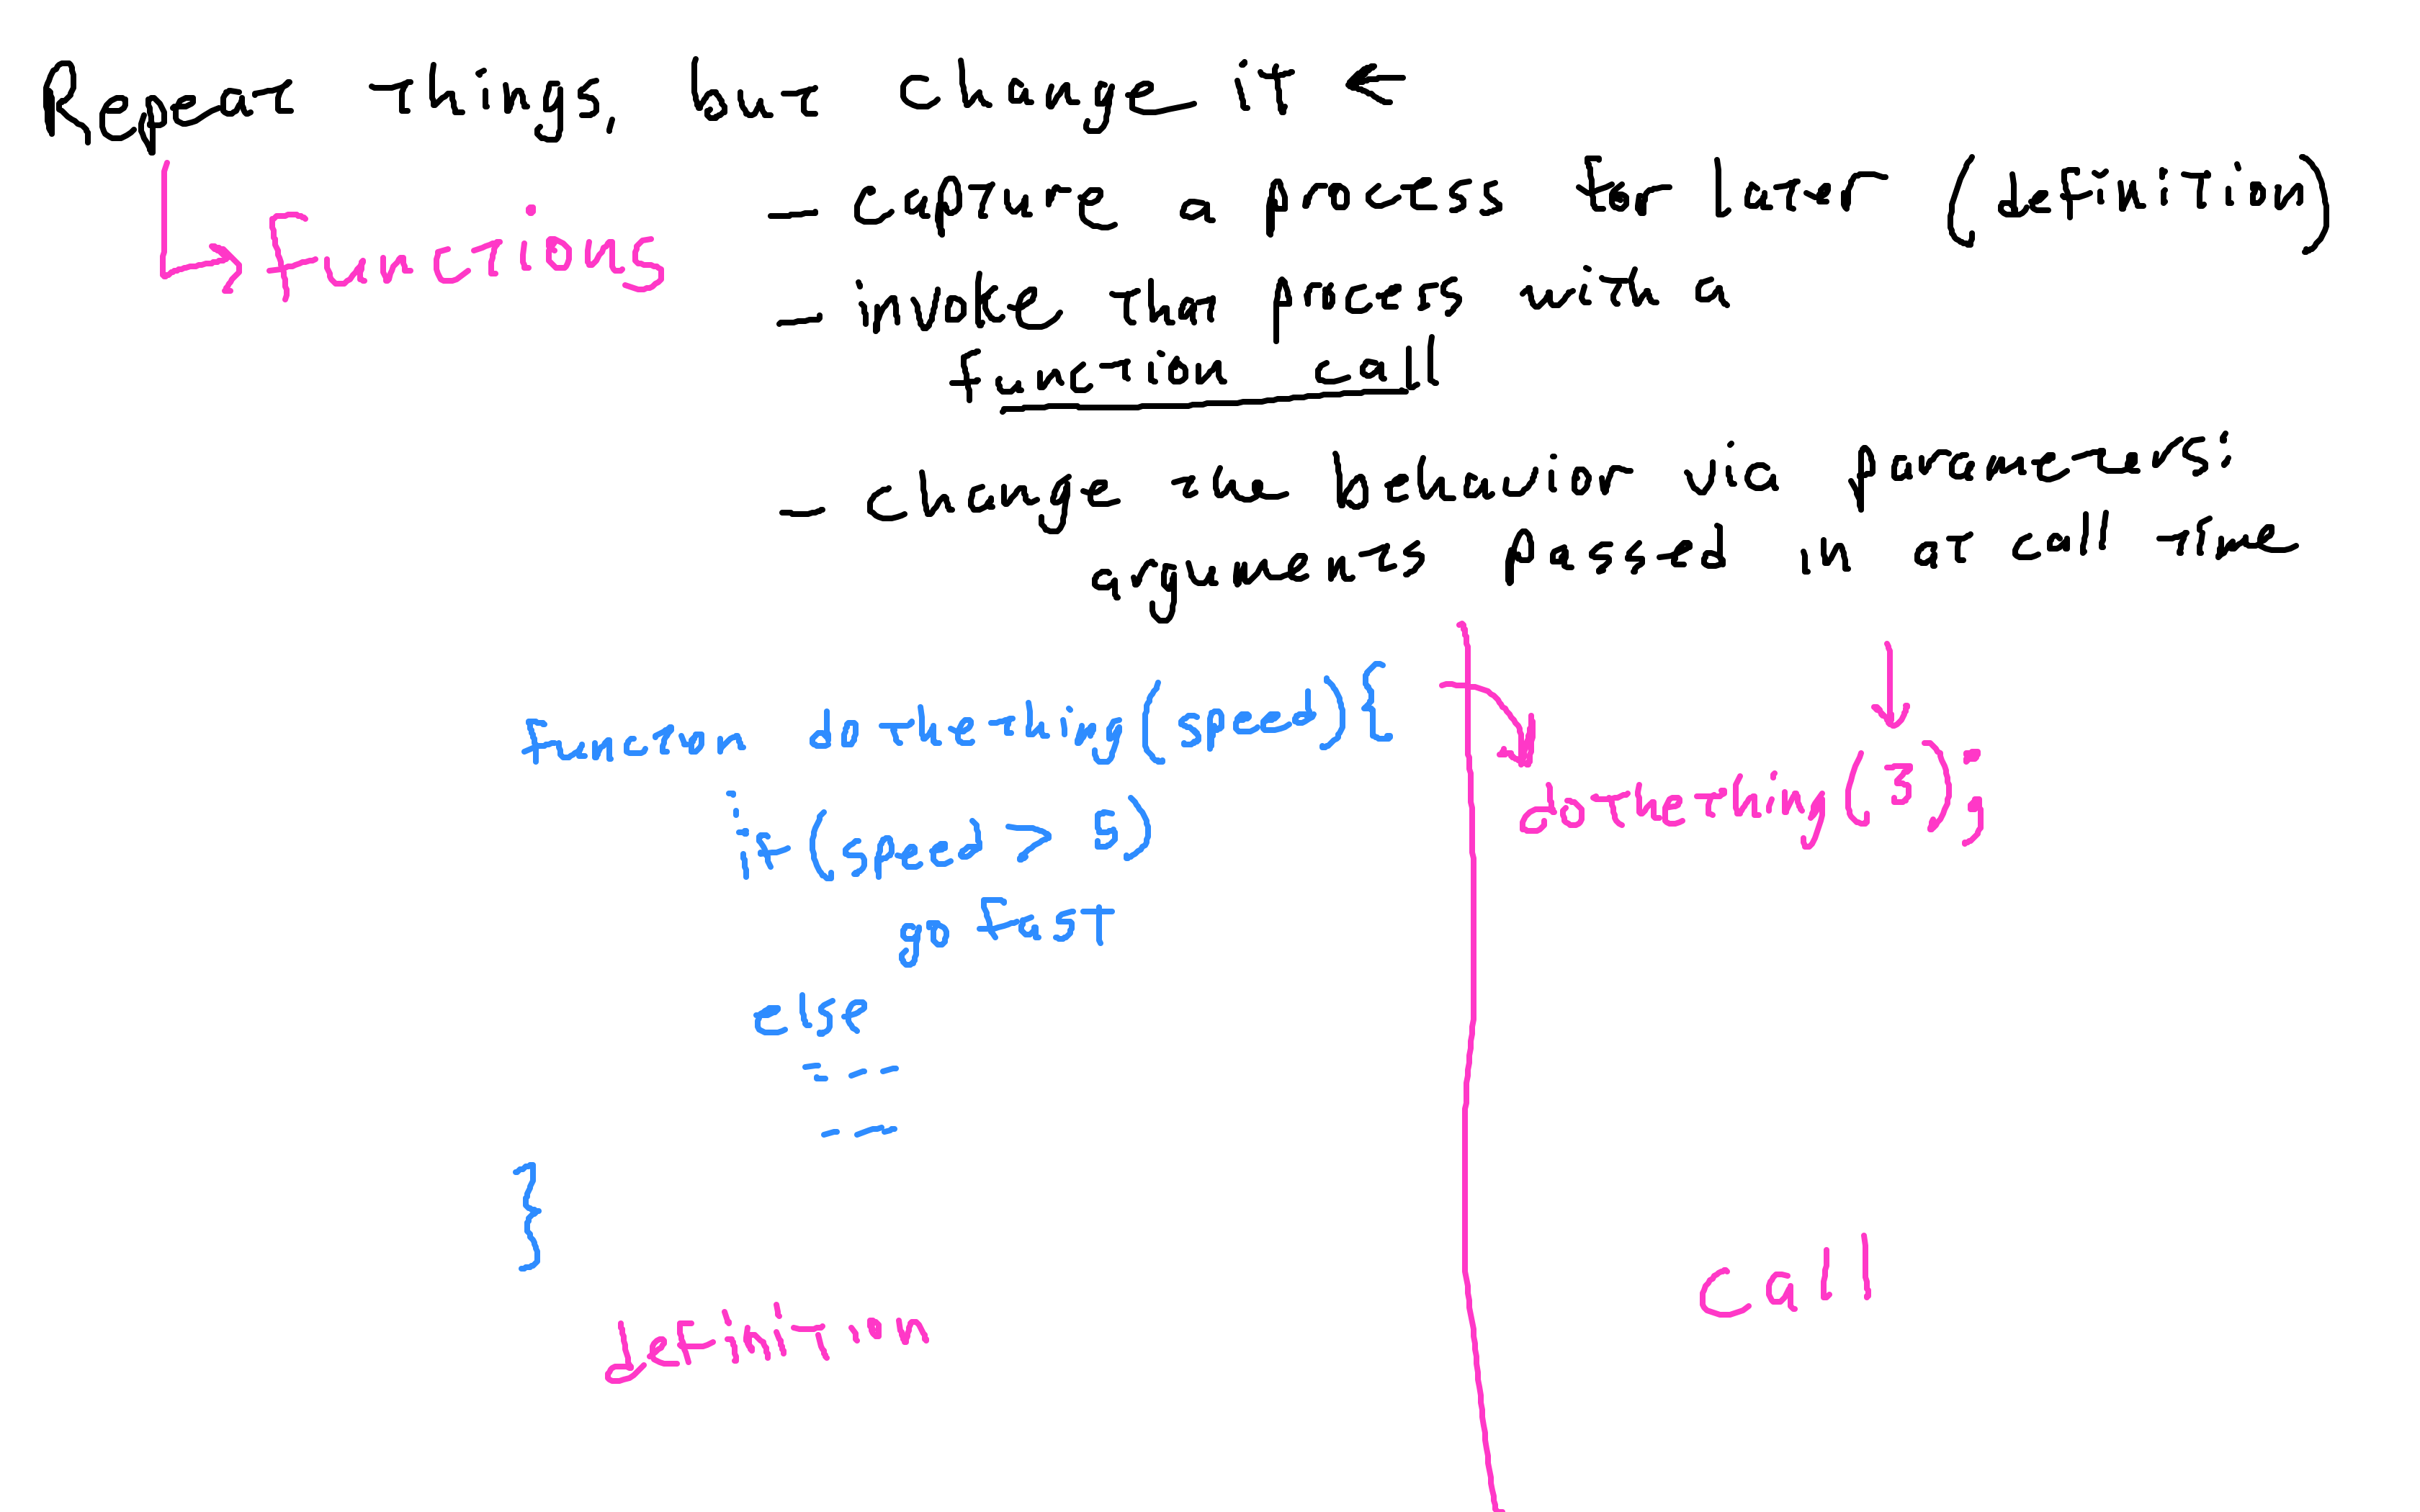 Repeat things, but change it ←
↳ Functions
- capture a process for later (definition)
- invoke that process with a
function call
- change the behavior via parameters:
arguments passed in at call time
function dothething(speed){
if (speed > 5)
go fast
else
}
definition
dothething(3);
call